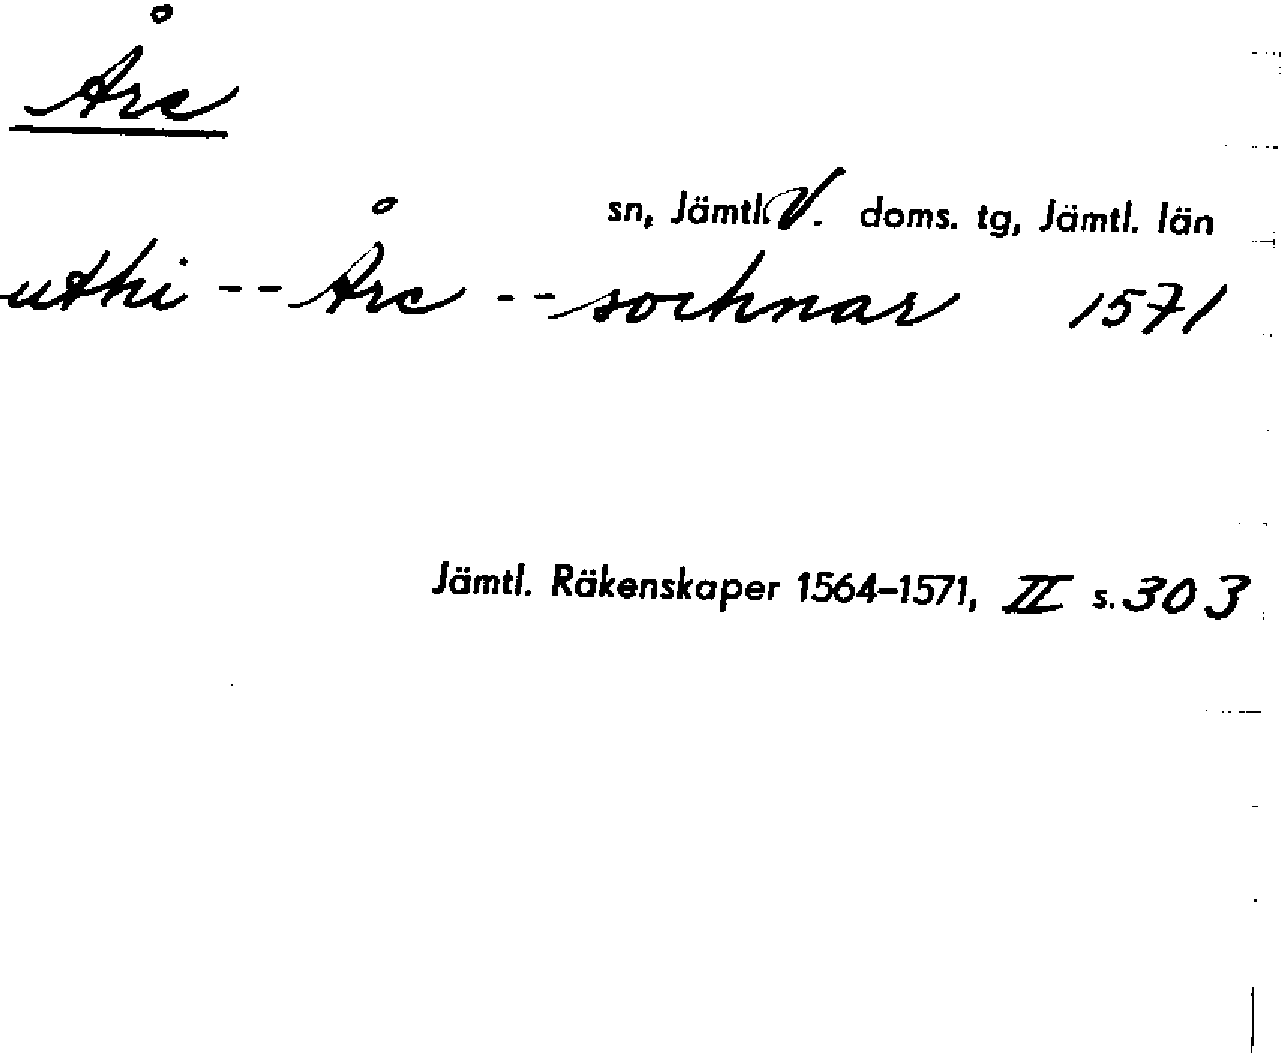 Åre
sn, Jämtl. V. doms. tg, Jämtl. län
uthi -- Åre -- sochnar 1571
Jämtl. Räkenskaper 1564-1571, II s. 303